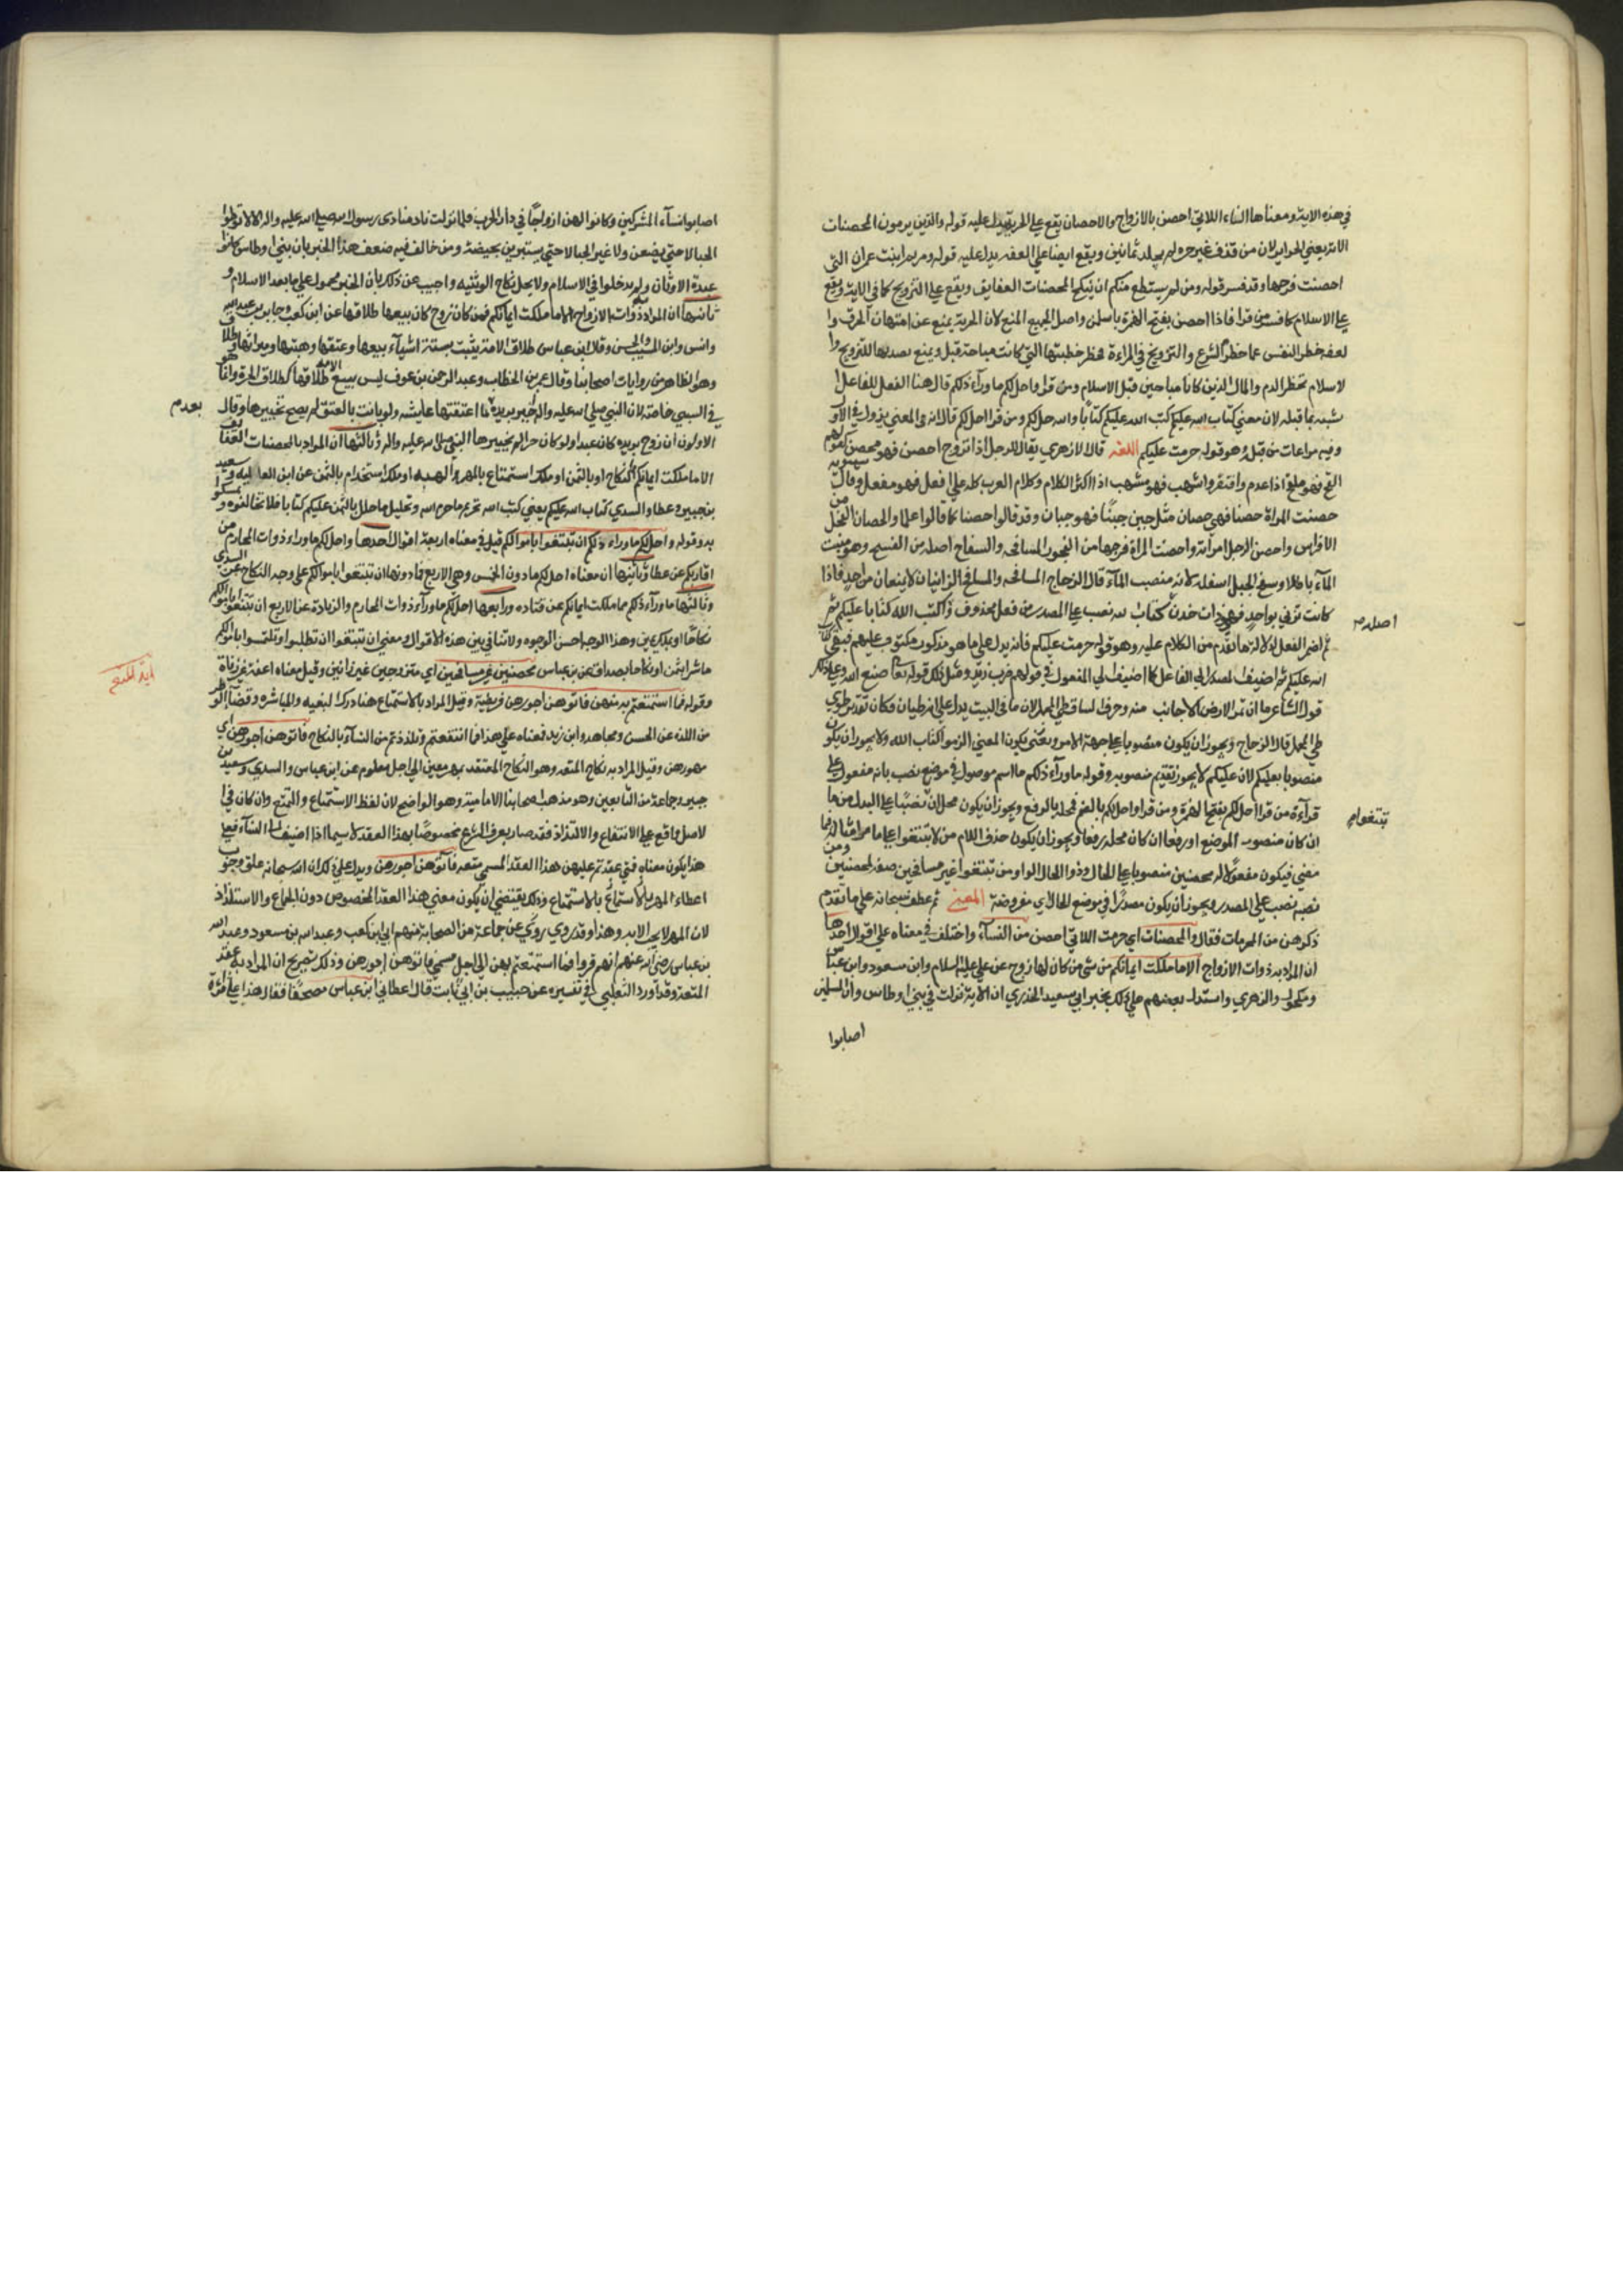 في هذه الاية ومعناها النساء اللاتي احصن بالازواج والاحصان يقع على الحرية يدل عليه قوله والذين يرمون المحصنات
الاية يعني الحراير لان من قذف غير حره لم يجلد ثمانين ويقع ايضا على العفه يدل عليه قوله ومريم ابنت عمران التي
احصنت فرجها وقد فسر قوله ومن لم يستطع منكم ان ينكح المحصنات العفايف ويقع على التزويج كما في الاية ويقع
على الاسلام كما فسر من قرا فاذا احصن بفتح الهمزة باسلمن واصل الجميع المنع لان الحرية يمنع عن امتهان الرق وا
لعفه حظر النفس عما حظر الشرع والتزويج في المراءة يحظر خطبتها التي كانت مباحة قبل ويمنع تصديها للتزويج وا
لاسلام يحظر الدم والمال الذين كانا مباحين قبل الاسلام ومن قرا واحل لكم ما ورآء ذلكم قال هنا الفعل للفاعل ا
شبه بما قبله لان معني كتاب الله عليكم كتب الله عليكم كتابا والله احل لكم ومن قرا احل لكم قال انه في المعني يؤول في الاول
وفيه مراعات من قبل وهو قوله حرمت عليكم اللغه قال الازهري يقال للرجل اذا تزوج احصن فهو محصن كقولهم
الفج فهو ملفج اذا عدم وافتقر واسهب فهو مسهب اذا اكثر الكلام وكلام العرب كله على افعل فهو مفعل وقال سيبويه
حصنت المراة حصنا فهي حصان مثل جبن جبنا فهو جبان وقد قالوا حصنا كما قالوا علما والحصان الفحل من
الافراس واحصن الرجل امراته واحصنت المراة فرجها من الفجور المسافحه والسفاح اصله من السفح وهو صب
المآء باطلا وسفح الجبل اسفله لانه منصب المآء قال الزجاج المسافحه والمسافح الزانيان لا يمتنعان من احد فاذا
كانت تزني بواحد فهي ذات خدن كتاب الله نصب على المصدر من فعل محذوف واكتب الله كتابا عليكم ثم
ثم اضمر الفعل لدلالة ما تقدم من الكلام عليه وهو قوله حرمت عليكم فانه يدل على ما هو مذكور مكتوب عليهم فبقي كتاب
الله عليكم ثم اضيف المصدر الى الفاعل كما اضيف الى المفعول في قولهم ضرب زيد ومثل ذلك قوله تعا صنع الله وعلى ذلك
قول الشاعر ما ان تمس الارض الا جانب منه وحرف الساق طي المحمل لان ما في البيت يدل على انه طيان فكان تقديره طوي
طي المحمل قال الزجاج ويجوز ان يكون منصوبا على جهة الامر ويكون المعني الزموا كتاب الله ولا يجوز ان يكون
منصوبا بعليكم لان عليكم لا يجوز تقديم منصوبه وقوله ما ورآء ذلكم ما اسم موصول في موضع نصب بانه مفعول على
قرآءة من قرا احل لكم بفتح الهمزة ومن قرا واحل لكم بالضم فمحله بالرفع ويجوز ان يكون محل ان نصبا على البدل من ما
ان كان منصوب الموضع او رفعا ان كان محله رفعا ويجوز ان يكون حذف اللام من لان تبتغوا على ما مر امثاله فيما
مضي فيكون مفعولا له محصنين منصوبا على الحال وذو الحال الواو من تبتغوا غير مسافحين صفة لمحصنين ومن
نصبه نصب على المصدر ويجوز ان يكون مصدرا في موضع الحال اي مفروضة المعني ثم عطف سبحانه على ما تقدم
ذكرهن من المحرمات فقال والمحصنات اي حرمت اللاتي احصن من النسآء واختلف في معناه على اقوال احدها
ان المراد به ذوات الازواج الا ما ملكت ايمانكم من سبي من كان لها زوج عن على عليه السلام وابن مسعود وابن عباس
ومكحول والزهري واستدل بعضهم على ذلك بخبر ابي سعيد الخدري ان الاية نزلت في سبي اوطاس وان المسلمين
اصابوا
اصله م
تبتغوا م
اصابوا نسآء المشركين وكانوا لهن ازواجا في دار الحرب فلما نزلت نادى منادي رسول الله صلى الله عليه واله الا لا توطوا
الحبالا حتى يضعن ولا غير الحبالا حتى يستبرين بحيضة ومن خالف فيه ضعف هذا الخبر بان سبي اوطاس كانوا
عبدة الاوثان ولم يدخلوا في الاسلام ولا يحل نكاح الوثنيه واجيب عن ذلك بان الخبر محمول على ما بعد الاسلام و
ثانيها ان المراد ذوات الازواج الا ما ملكت ايمانكم فمن كان زوج كان بيعها طلاقها عن ابن كعب وجابر بن عبدالله
وانس وابن المسيب والحسن وقال ابن عباس طلاق الامة يثبت بستة اشيآء بيعها وعتقها وهبتها وميراثها وطلا
وهو الظاهر من روايات اصحابنا وقال عمر بن الخطاب وعبد الرحمن بن عوف ليس بيع الامه طلاقها كطلاق الحرة وانما هو
في السبي خاصة لان النبي صلى الله عليه واله خير بريده لما اعتقتها عايشه ولو بانت بالعتق لم يصح تخييرها وقال
الاولون ان زوج بريده كان عبدا ولو كان حرا لم يخيرها النبي صلى الله عليه واله وثالثها ان المراد بالمحصنات العفايف
الا ما ملكت ايمانكم بالنكاح او بالثمن او ملك استمتاع بالمهر والهبه او ملك استخدام بالثمن عن ابن العاليه وسعيد
بن جبير وعطا والسدي كتاب الله عليكم يعني كتب الله تحريم ما حرم الله وتحليل ما حلل بالثمن عليكم كتابا فلا تخالفوه وتمسكوا
به وقوله واحل لكم ما وراء ذلكم ان تبتغوا باموالكم قيل في معناه اربعة اقوال احدها واحل لكم ما وراء ذوات المحارم من
اقاربكم عن عطا وثانيها ان معناه احل لكم ما دون الخمس وهي الاربع فما دونها ان تبتغوا باموالكم على وجه النكاح عن السدي
وثالثها ما ورآء ذلكم مما ملكت ايمانكم عن قتاده ورابعها احل لكم ما ورآء ذوات المحارم والزيادة عن الاربع ان تبتغوا باموالكم
نكاحا او بملك يمين وهذا الوجه احسن الوجوه ولا تنافي بين هذه الاقوال ومعني ان تبتغوا ان تطلبوا وتلتمسوا باموالكم
ما شرا بثمن او نكاحا بصداق عن بن عباس محصنين غير مسافحين اي متزوجين غير زانين وقيل معناه اعفة غير زناة
وقوله فما استمتعتم به منهن فاتوهن اجورهن فريضة وقيل المراد بالاستمتاع هنا درك البغيه والمباشره وقضآ الوطر
من اللذه عن الحسن ومجاهد وابن زيد فمعناه على هذا فما انتفعتم وتلذذتم من النسآء بالنكاح فاتوهن اجورهن اي
مهورهن وقيل المراد به نكاح المتعه وهو النكاح المنعقد بمهر معين الى اجل معلوم عن ابن عباس والسدي وسعيد بن
جبير وجماعة من التابعين وهو مذهب اصحابنا الاماميه وهو الواضح لان لفظ الاستمتاع والتمتع وان كان في ا
لاصل واقع على الانتفاع والالتذاذ فقد صار بعرف الشرع مخصوصا بهذا العقد لا سيما اذا اضيف الى النسآء فعلى
هذا يكون معناه فمتي عقدتم عليهن هذا العقد المسمي متعه فآتوهن اجورهن ويدل على ذلك ان الله سبحانه علق وجوب
اعطاء المهر بالاستمتاع وذلك يقتضي ان يكون معني هذا العقد المخصوص دون الجماع والاستلذاذ
لان المهر لا يجب الا به وهذا وقد روي عن جماعة من الصحابة منهم ابي بن كعب وعبد الله بن مسعود وعبد الله
بن عباس رضي الله عنهم انهم قروا فما استمتعتم بهن الى اجل مسمي فاتوهن اجورهن وذلك تصريح ان المراد به عقد
المتعه وقد اورد الثعلبي في تفسيره عن حبيب بن ابي ثابت قال اعطاني ابن عباس مصحفا فقال هذا على قراءة
بعد م
آية المتع